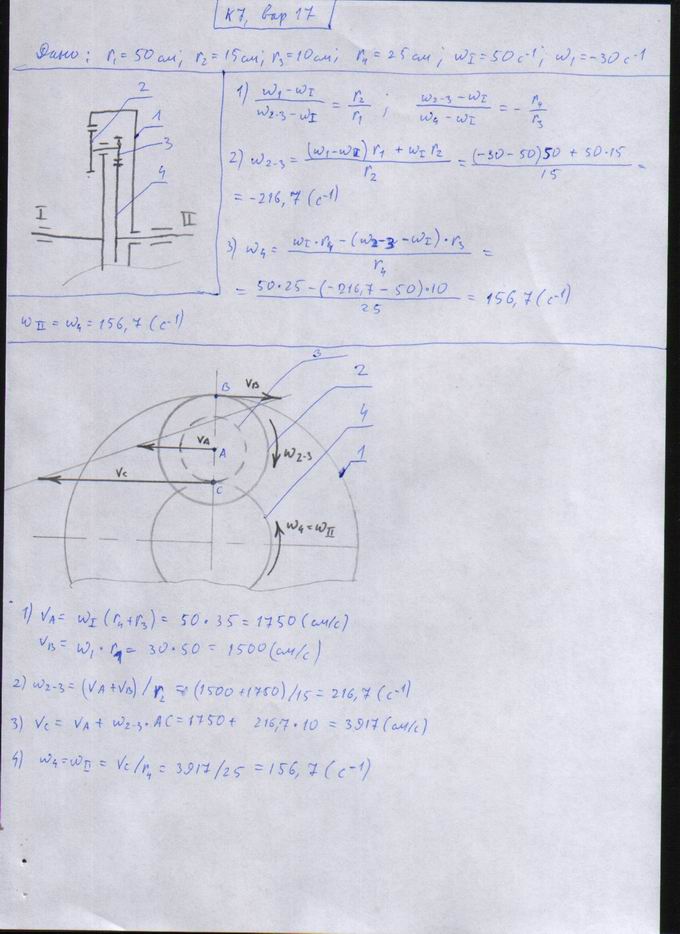 К7, вар 17
Дано: r₁ = 50 см; r₂ = 15 см; r₃ = 10 см; r₄ = 25 см; ωI = 50 с⁻¹; ω₁ = -30 с⁻¹
2
1
3
4
I
II
1) (ω₁ - ωI)/(ω₂₋₃ - ωI) = r₂/r₁ ; (ω₂₋₃ - ωI)/(ω₄ - ωI) = - r₄/r₃
2) ω₂₋₃ = ((ω₁ - ωI) r₁ + ωI r₂)/r₂ = ((-30 - 50)50 + 50·15)/15 =
= -216,7 (с⁻¹)
3) ω₄ = (ωI · r₄ - (ω₂₋₃ - ωI) · r₃)/r₄ =
= (50·25 - (-216,7 - 50)·10)/25 = 156,7 (с⁻¹)
ωII = ω₄ = 156,7 (с⁻¹)
3
B
VB
2
4
VA
A
ω₂₋₃
1
VC
C
ω₄ = ωII
1) VA = ωI (r₄ + r₃) = 50 · 35 = 1750 (см/с)
VB = ω₁ · r₁ = 30 · 50 = 1500 (см/с)
2) ω₂₋₃ = (VA + VB) / r₂ = (1500 + 1750) / 15 = 216,7 (с⁻¹)
3) VC = VA + ω₂₋₃ · AC = 1750 + 216,7 · 10 = 3917 (см/с)
4) ω₄ = ωII = VC / r₄ = 3917 / 25 = 156,7 (с⁻¹)